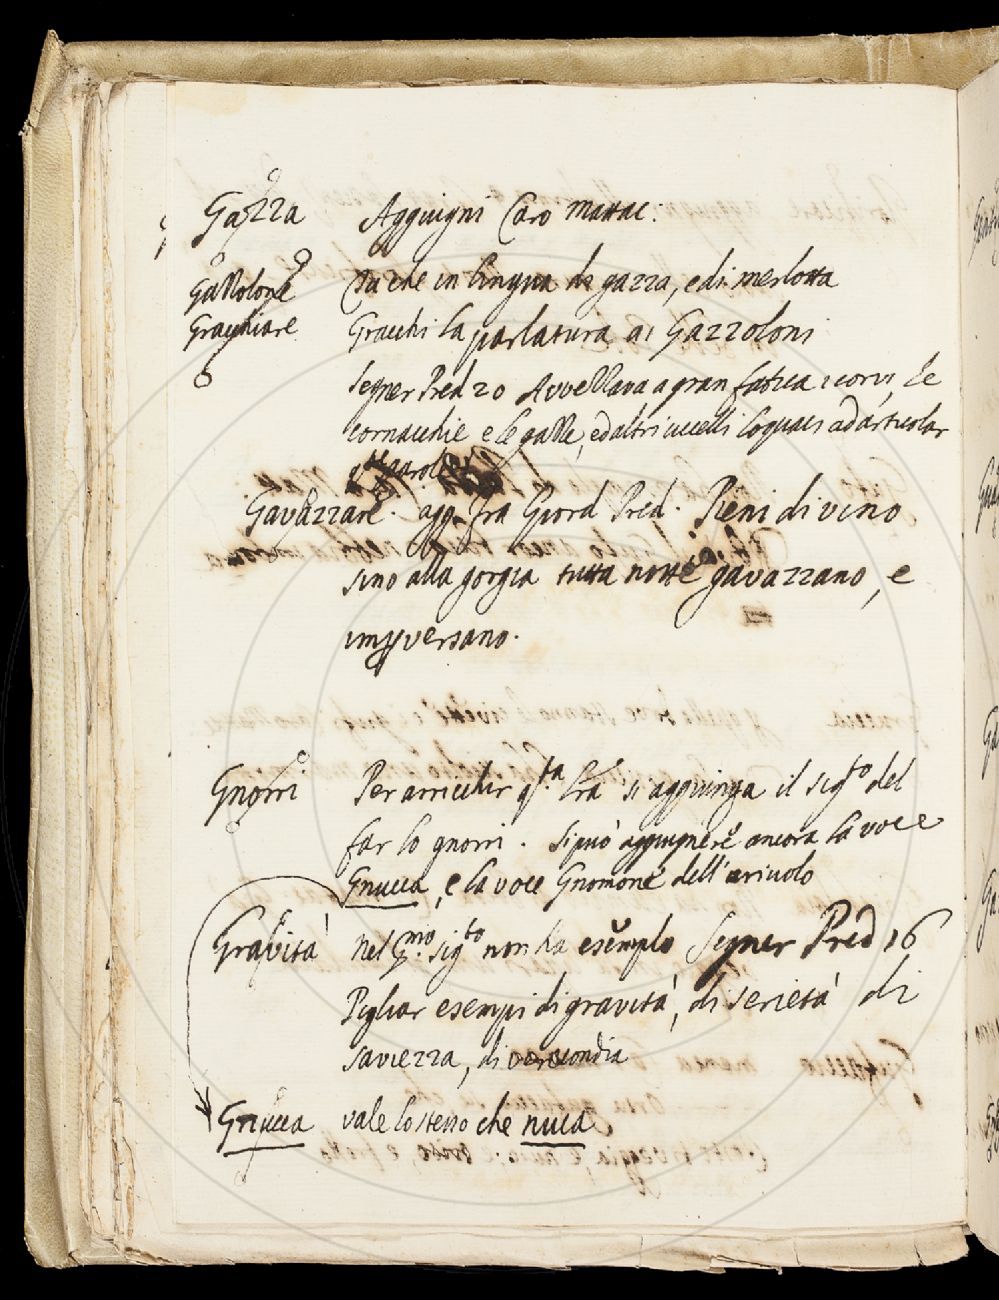 Gazza Aggiugni Caro Mattac:
Gazzolone Tu che in lingua di gazza, e di merlotta
Gracchiare Gracchi la parlatura ai Gazzoloni
Segner Pred 20 Avvezzava a gran fatica i corvi, le
cornacchie e le gazze, ed altri uccelli loquaci ad articolar
parole
Gavazzare. agg. Fra Giord Pred. Pieni di vino
sino alla gorgia tutta notte gavazzano, e
imperversano.
Gnorri Per arricchir q.ta Cra si aggiunga il sig.to del
far lo gnorri. Si può aggiugnere ancora la voce
Gnucca, e la voce Gnomone dell'oriuolo
Gravità Nel pmo. sig.to non ha esemplo Segner Pred 16
Pigliar esempi di gravità, di serietà di
saviezza, di verecondia
Gnucca vale lo stesso che nuca